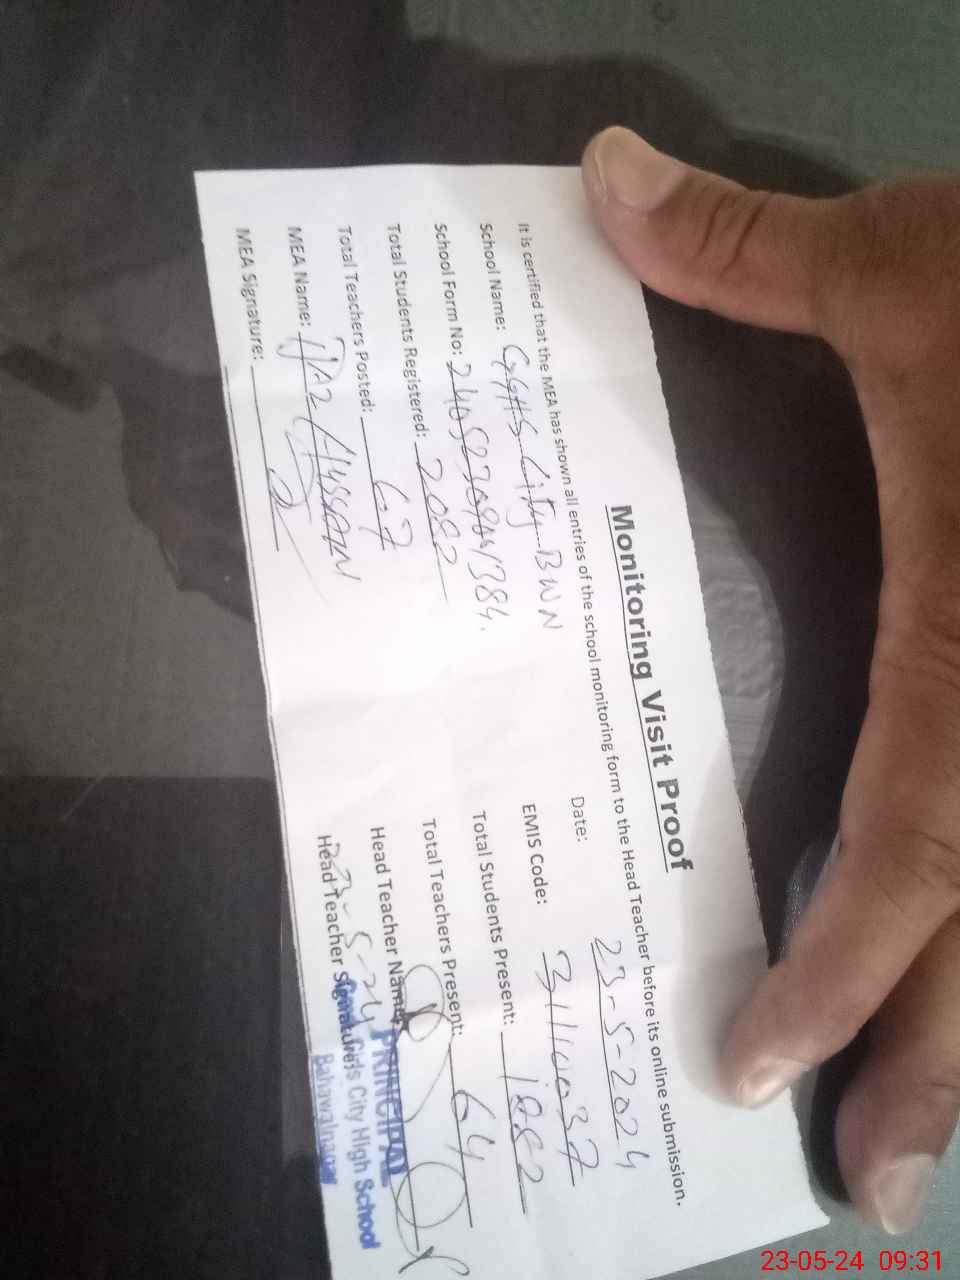 Monitoring Visit Proof
It is certified that the MEA has shown all entries of the school monitoring form to the Head Teacher before its online submission.
School Name: GGHS City BWN Date: 23-5-2024
School Form No: EMIS Code:
Total Students Registered: 2082 Total Students Present: 1852
Total Teachers Posted: 67 Total Teachers Present: 64
MEA Name: Head Teacher Name:
MEA Signature: Head Teacher Signature:
23-5-24
PRINCIPAL
Girls City High School
Bahawalnagar
23-05-24 09:31